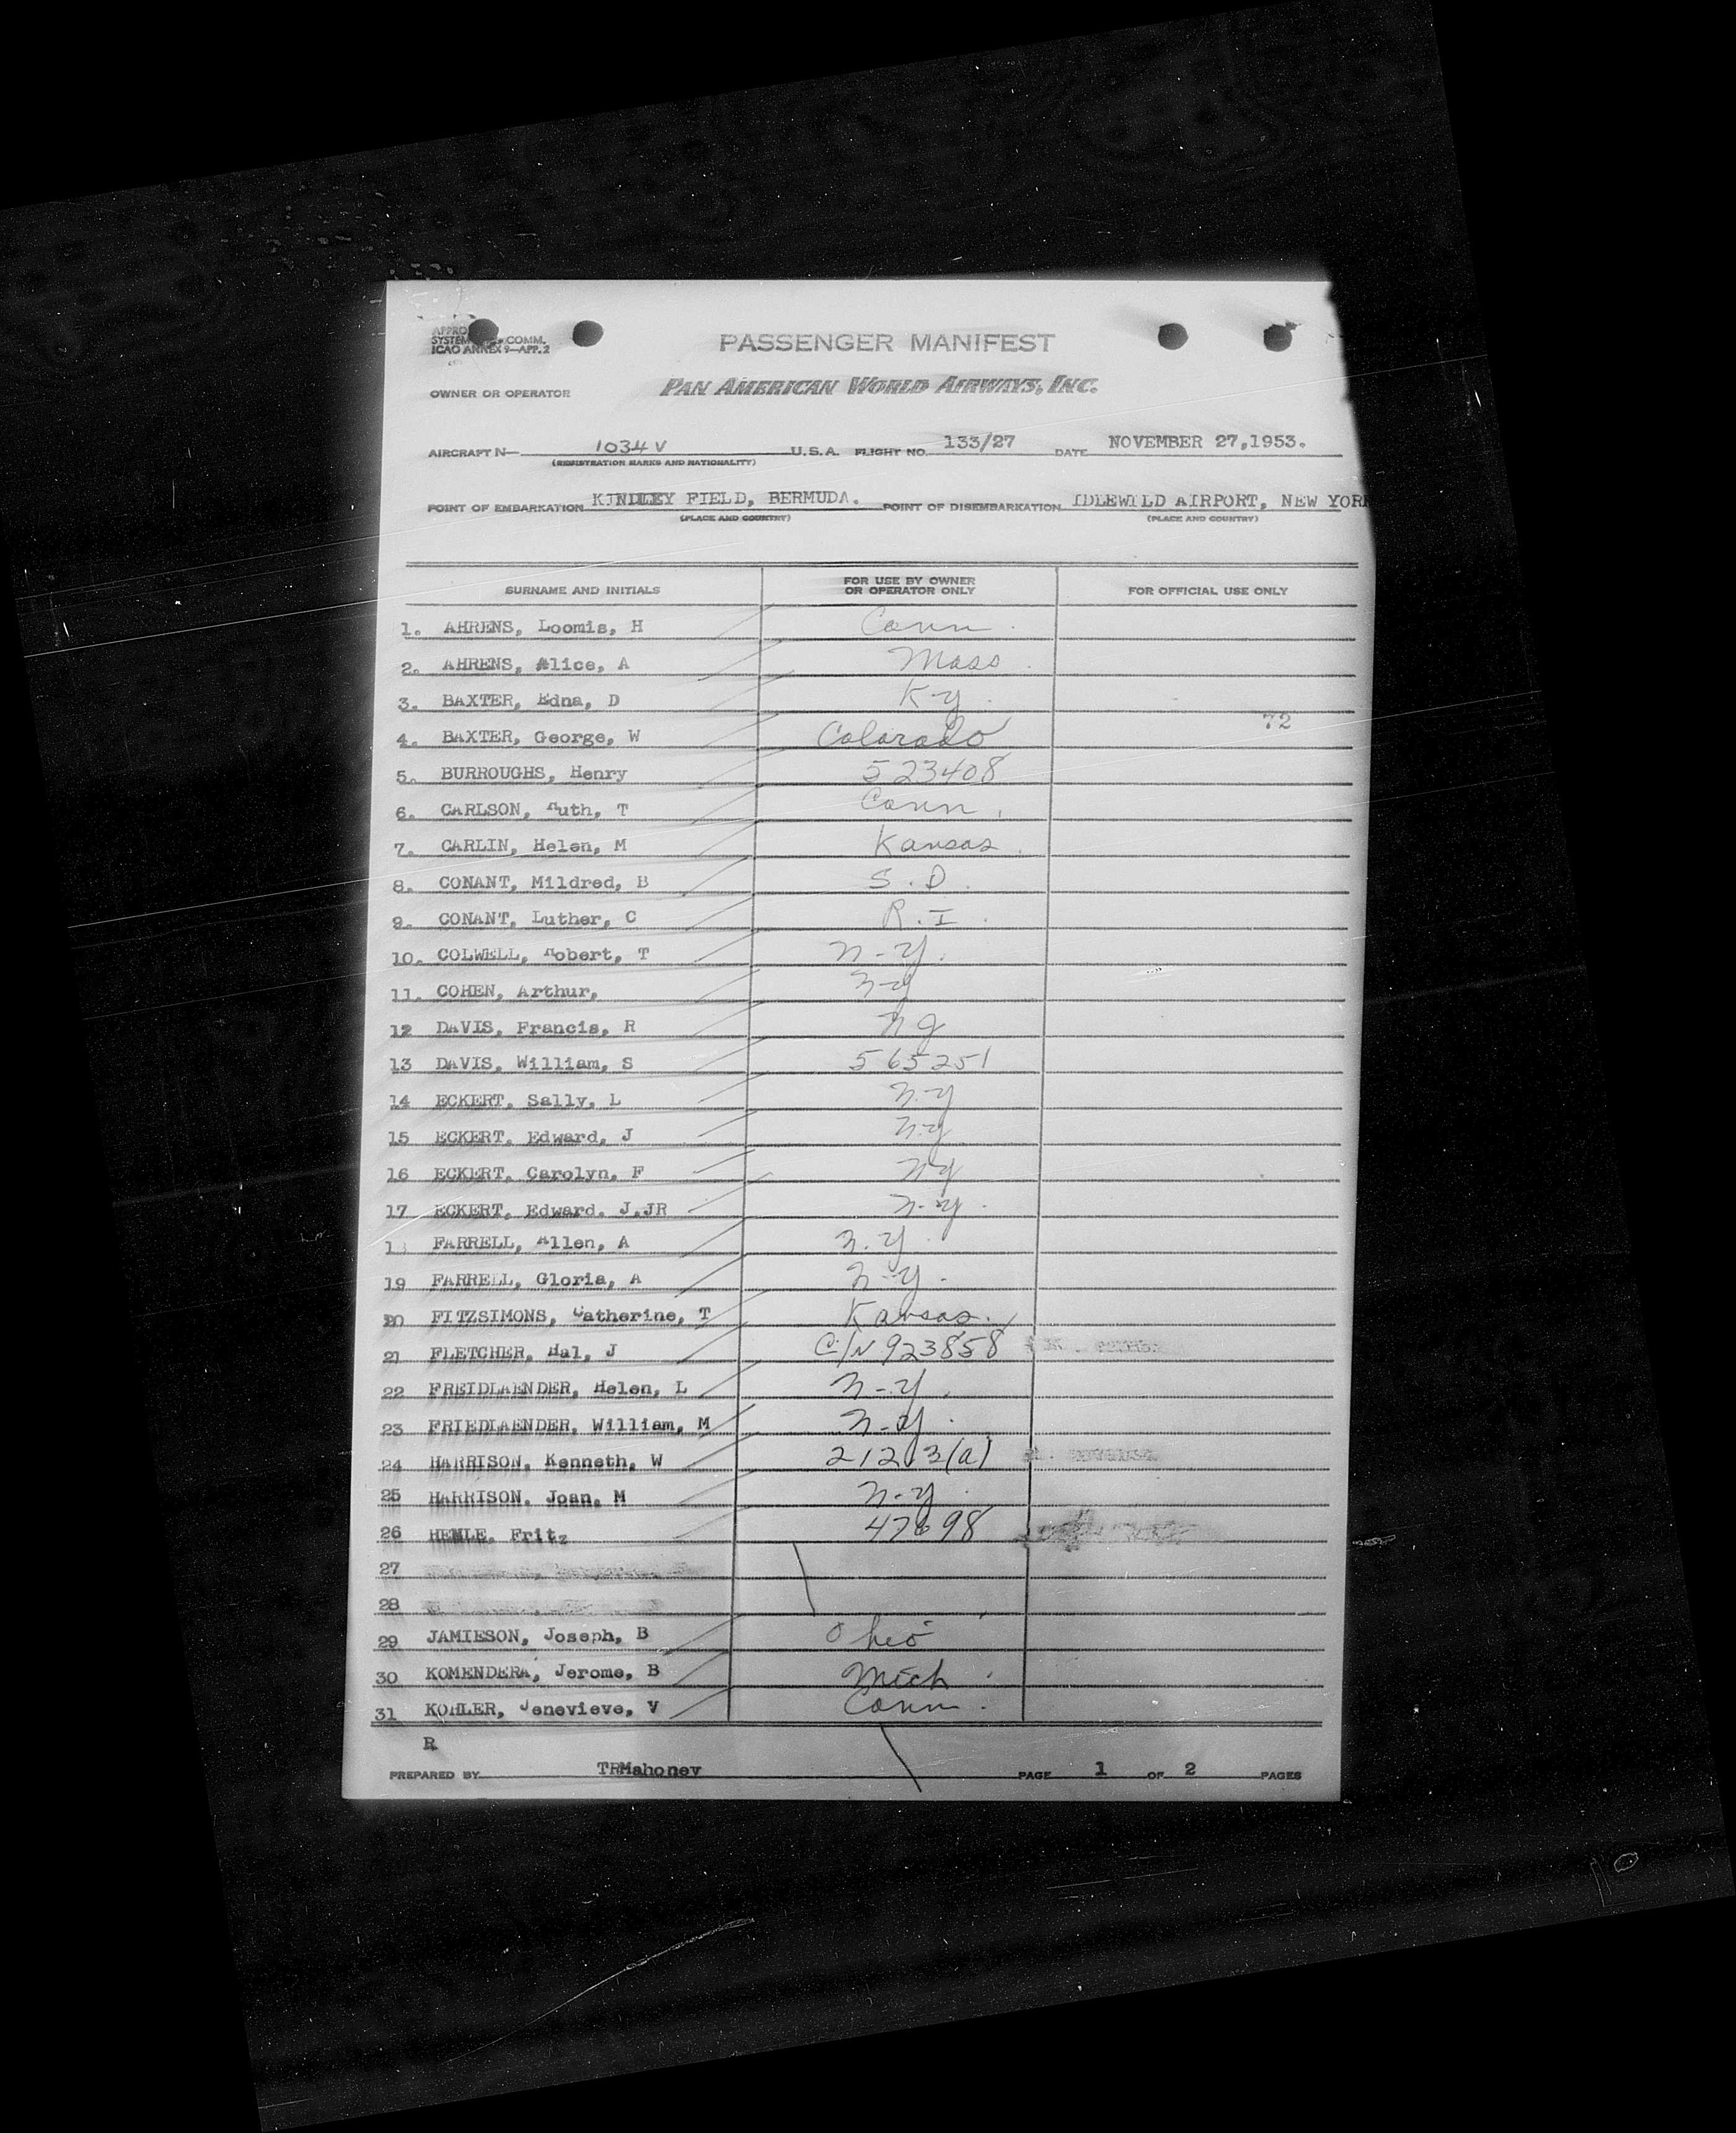 PASSENGER MANIFEST
SYSTEM COMM.
ICAO ANNEX 9—APP. 2
OWNER OR OPERATOR PAN AMERICAN WORLD AIRWAYS, INC.
AIRCRAFT N— 1034V U.S.A. FLIGHT NO. 133/27 DATE NOVEMBER 27,1953.
(REGISTRATION MARKS AND NATIONALITY)
POINT OF EMBARKATION KINDLEY FIELD, BERMUDA. POINT OF DISEMBARKATION IDLEWILD AIRPORT, NEW YORK
(PLACE AND COUNTRY) (PLACE AND COUNTRY)
SURNAME AND INITIALS FOR USE BY OWNER OR OPERATOR ONLY FOR OFFICIAL USE ONLY
1. AHRENS, Loomis, H Conn.
2. AHRENS, Alice, A Mass.
3. BAXTER, Edna, D K-y.
72
4. BAXTER, George, W Colorado
5. BURROUGHS, Henry 523408
6. CARLSON, Ruth, T Conn.
7. CARLIN, Helen, M Kansas.
8. CONANT, Mildred, B S.D.
9. CONANT, Luther, C R.I.
10. COLWELL, Robert, T N-Y.
11. COHEN, Arthur, N-Y
12 DAVIS, Francis, R
13 DAVIS, William, S 565251
14 ECKERT, Sally, L N-Y
15 ECKERT, Edward, J N-Y
16 ECKERT, Carolyn, F NY
17 ECKERT, Edward. J.JR N-Y.
1 FARRELL, Allen, A N.Y.
19 FARRELL, Gloria, A N-Y.
20 FITZSIMONS, Catherine, T Kansas.
21 FLETCHER, Hal, J C/N 923858
22 FREIDLAENDER, Helen, L N-Y.
23 FRIEDLAENDER, William, M N-Y.
24 HARRISON, Kenneth, W 212 3(a)
25 HARRISON. Joan, M N-Y.
26 HEMLE, Fritz 47698
27
28
29 JAMIESON, Joseph, B Ohio
30 KOMENDERA, Jerome, B Mich.
31 KOHLER, Jenevieve, V Conn.
R
PREPARED BY TRMahoney PAGE 1 OF 2 PAGES